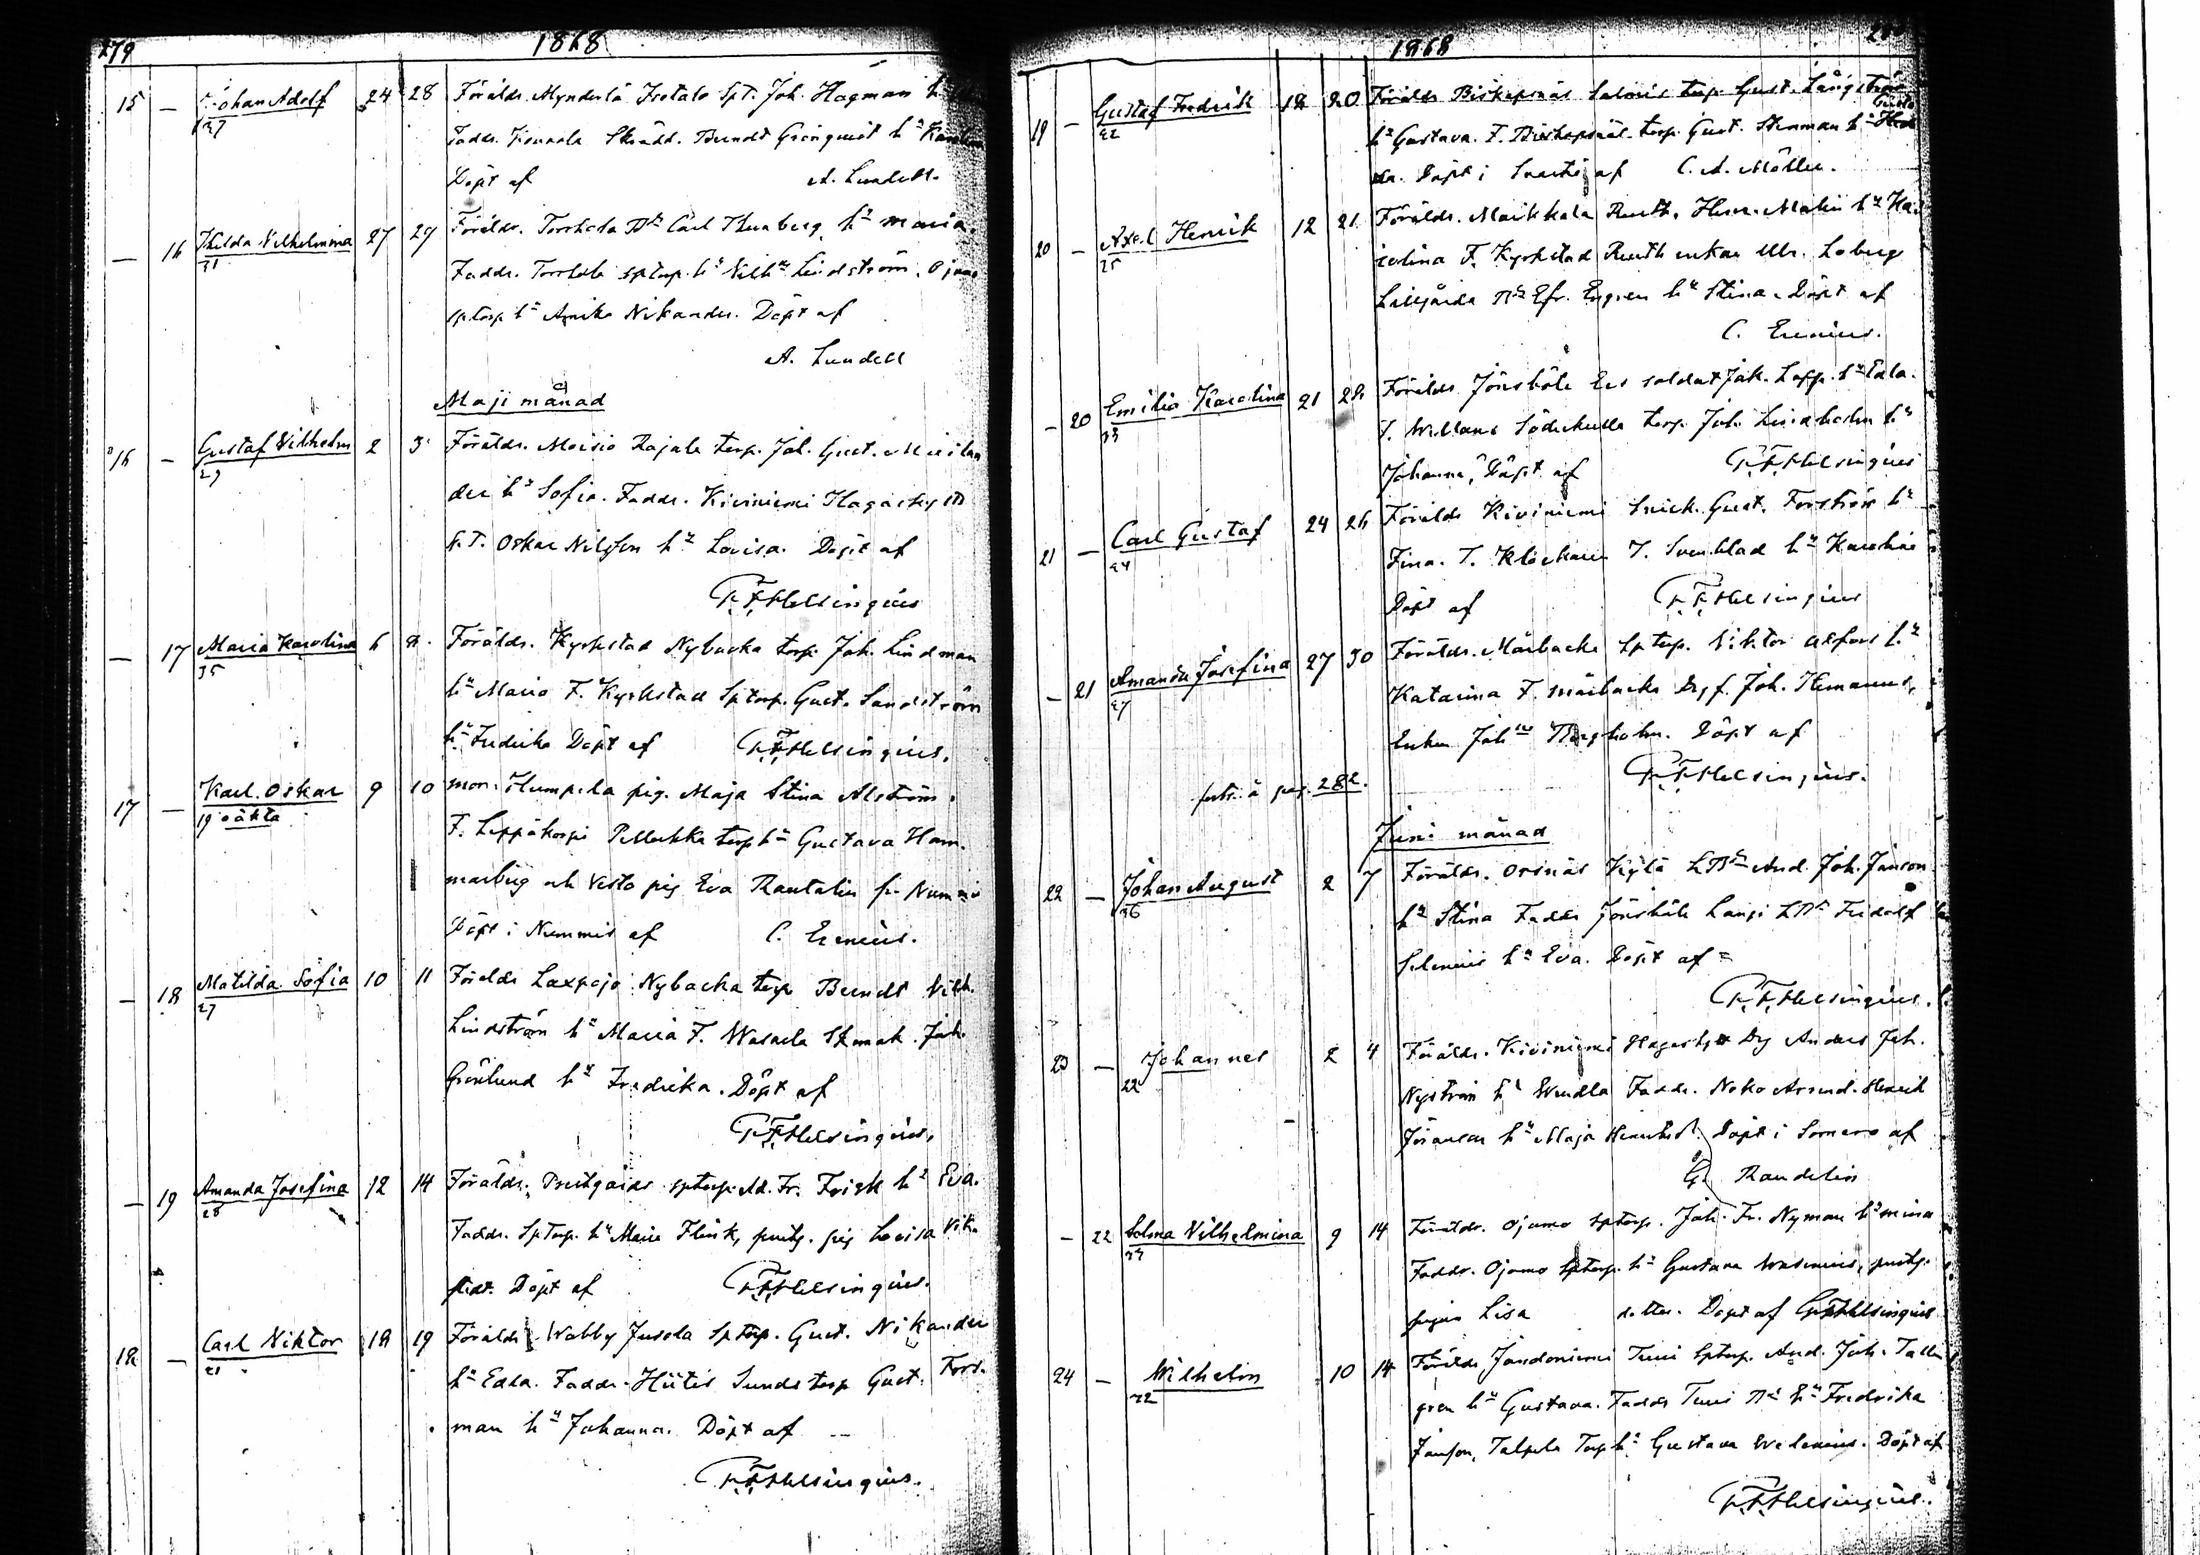 279
1868
15 — Johan Adolf 24 28 Föräldr. Mynderlä Isotalo Spt. Joh. Hagman hu
27
Faddr. Koukola Skrädd. Berndt Grönquist hu Karolina
Döpt af A. Lundell.
— 16 Hilda Vilhelmina 27 29 Föräldr. Torrhola Carl Thunberg, hu Maria.
31
Faddr. Torrhola sptorp. hu Vilhna Lindström, Ojamo
sptorp hu Anika Nikander. Döpt af
A. Lundell
Maji månad
16 — Gustaf Vilhelm 2 3 Föräldr. Moisio Rajala torp. Joh. Gust.
29
der hu Sofia. Faddr. Kiviniemi Haga
Oskar Nilsson hu Lovisa. Döpt af
F. F. Helsingius
— 17 Maria Karolina 6 8. Föräldr. Kyrkstad Nybacka torp. Joh. Lindman
35
hu Maria F. Kyrkstad Sptorp. Gust. Sandström
hu Fredrika Döpt af F. F. Helsingius.
17 — Karl Oskar 9 10 mor. Humpila pig. Maja Stina Alström.
19 oäkta
F. Leppäkorpi Pellukka torp hu Gustava Ham-
marberg och Vesto pig Eva Rautalin fr. Nummis
Döpt i Nummis af C. Erenius.
— 18 Matilda Sofia 10 11 Föräldr Laxpojo Nybacka torp Berndt Vilh.
27
Lindström hu Maria F. Wasarla Skomak. Joh.
Grönlund hu Fredrika. Döpt af
F. F. Helsingius.
— 19 Amanda Josefina 12 14 Föräldr. Prestgårds sptorp. Ad. Fr. Frisk hu Eva.
28
Faddr. Sptorp. hu Maria Flink, prestg. pig Lovisa Vik-
stedt. Döpt af F. F. Helsingius.
18 — Carl Viktor 18 19 Föräldr. Wabby Jusola Sptorp. Gust. Nikander
21
hu Edla. Faddr. Hiitis Sunds torp Gust. Fors-
man hu Johanna. Döpt af
F. F. Helsingius.
1868
19 — Gustaf Fredrik 18 20 Föräldr Biskopsnäs torp Gust. Långström
22
hu Gustava. F. Biskopsnäs torp. Gust. Stenman hu
Döpt i Svartå af C. A. Möller.
20 — Axel Henrik 12 21 Föräldr. Maikkala Rusth. Herm. Malin hu Ka-
25
rolina F. Kyrkstad Rusth enkan Ulr. Loberg
Lillgårda Efr. Engren hu Stina. Döpt af
C. Erenius.
— 20 Emilia Karolina 21 28 Föräldr. Jönsböle soldat Jak. Lapp. hu Edla.
33
F. Söderkulla torp. Joh. Lindholm hu
Johanna, Döpt af F. F. Helsingius
21 — Carl Gustaf 24 26 Föräldr Kiviniemi Snick. Gust. Forström hu
24
Fina. F. Klockaren T. Svenblad hu Karolina
Döpt af F. F. Helsingius
— 21 Amanda Josefina 27 30 Föräldr. Mårbacka Sptorp. Viktor Alfors hu
27
Katarina F. Mårbacka Joh. Hemanus,
Enkan Johna Bergholm. Döpt af
F. F. Helsingius.
forts. å pag. 282.
Juni månad
22 — Johan August 2 7 Föräldr. Orsnäs Kylä And. Joh. Janson
36
hu Stina Faddr Jönsböle Laupi Fridolf
Selenius hu Eva. Döpt af
F. F. Helsingius.
23 — Johannes 2 4 Föräldr. Kiviniemi Anders Joh.
22
Nyström hu Wendla Faddr. Arrend. Henrik
hu Maja Döpt i Somero af
G. Randelin
— 22 Selma Vilhelmina 9 14 Föräldr. Ojamo sptorp. Joh. Fr. Nyman hu mina
Faddr. Ojamo Sptorp. hu Gustava Wasenius, prestg.
pigan Lisa Döpt af F. F. Helsingius
24 — Wilhelm 10 14 Föräldr. Jandoniemi Sptorp. And. Joh. Tall-
22
gren hu Gustava. Faddr hu Fredrika
Janson, Talpela Torp hu Gustava Welenius. Döpt af
F. F. Helsingius.